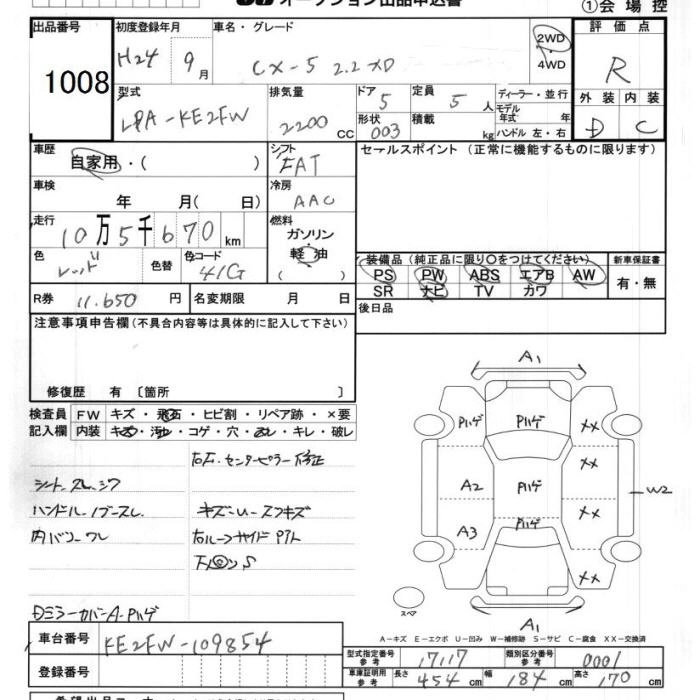 オークション出品申込書
①会場控
出品番号 初度登録年月 車名・グレード 評価点
1008 H24 9月 CX-5 2.2 XD 2WD・4WD R
型式 排気量 ドア 定員 ディーラー・並行 外装 内装
LPA-KE2FW 2200 CC 5 5人 モデル年式 年 D C
形状 積載 ハンドル 左・右
003 kg
車歴 シフト セールスポイント (正常に機能するものに限ります)
自家用・( ) FAT
車検 冷房
年 月( 日) AAC
走行 燃料
10万5千670km ガソリン
軽油
( )
色 色替 色コード 装備品(純正品に限り○をつけてください) 新車保証書
レッド 41G PS PW ABS エアB AW 有・無
SR ナビ TV カワ
R券 11.650円 名変期限 月 日 後日品
注意事項申告欄(不具合内容等は具体的に記入して下さい)
修復歴 有 〔箇所 〕
検査員 FW キズ・飛石・ヒビ割・リペア跡・×要
記入欄 内装 キズ・汚れ・コゲ・穴・スレ・キレ・破レ
右F.センターピラー修正
シートスレ.シワ
ハンドル.ノブースレ
キズ・U・スリキズ
内バリワレ
右ルーフサイドPアト
下回リS
DミラーカバーA・Pハゲ
A1
Pハゲ Pハゲ ××
A2 Pハゲ ×× W2
A3 Pハゲ
××
スペア
A1
A-キズ E-エクボ U-凹み W-補修跡 S-サビ C-腐食 XX-交換済
車台番号 KE2FW-109854
型式指定番号 参考 17117 類別区分番号 参考 0001
登録番号 車庫証明用 参考 長さ 454cm 幅 184cm 高さ 170cm